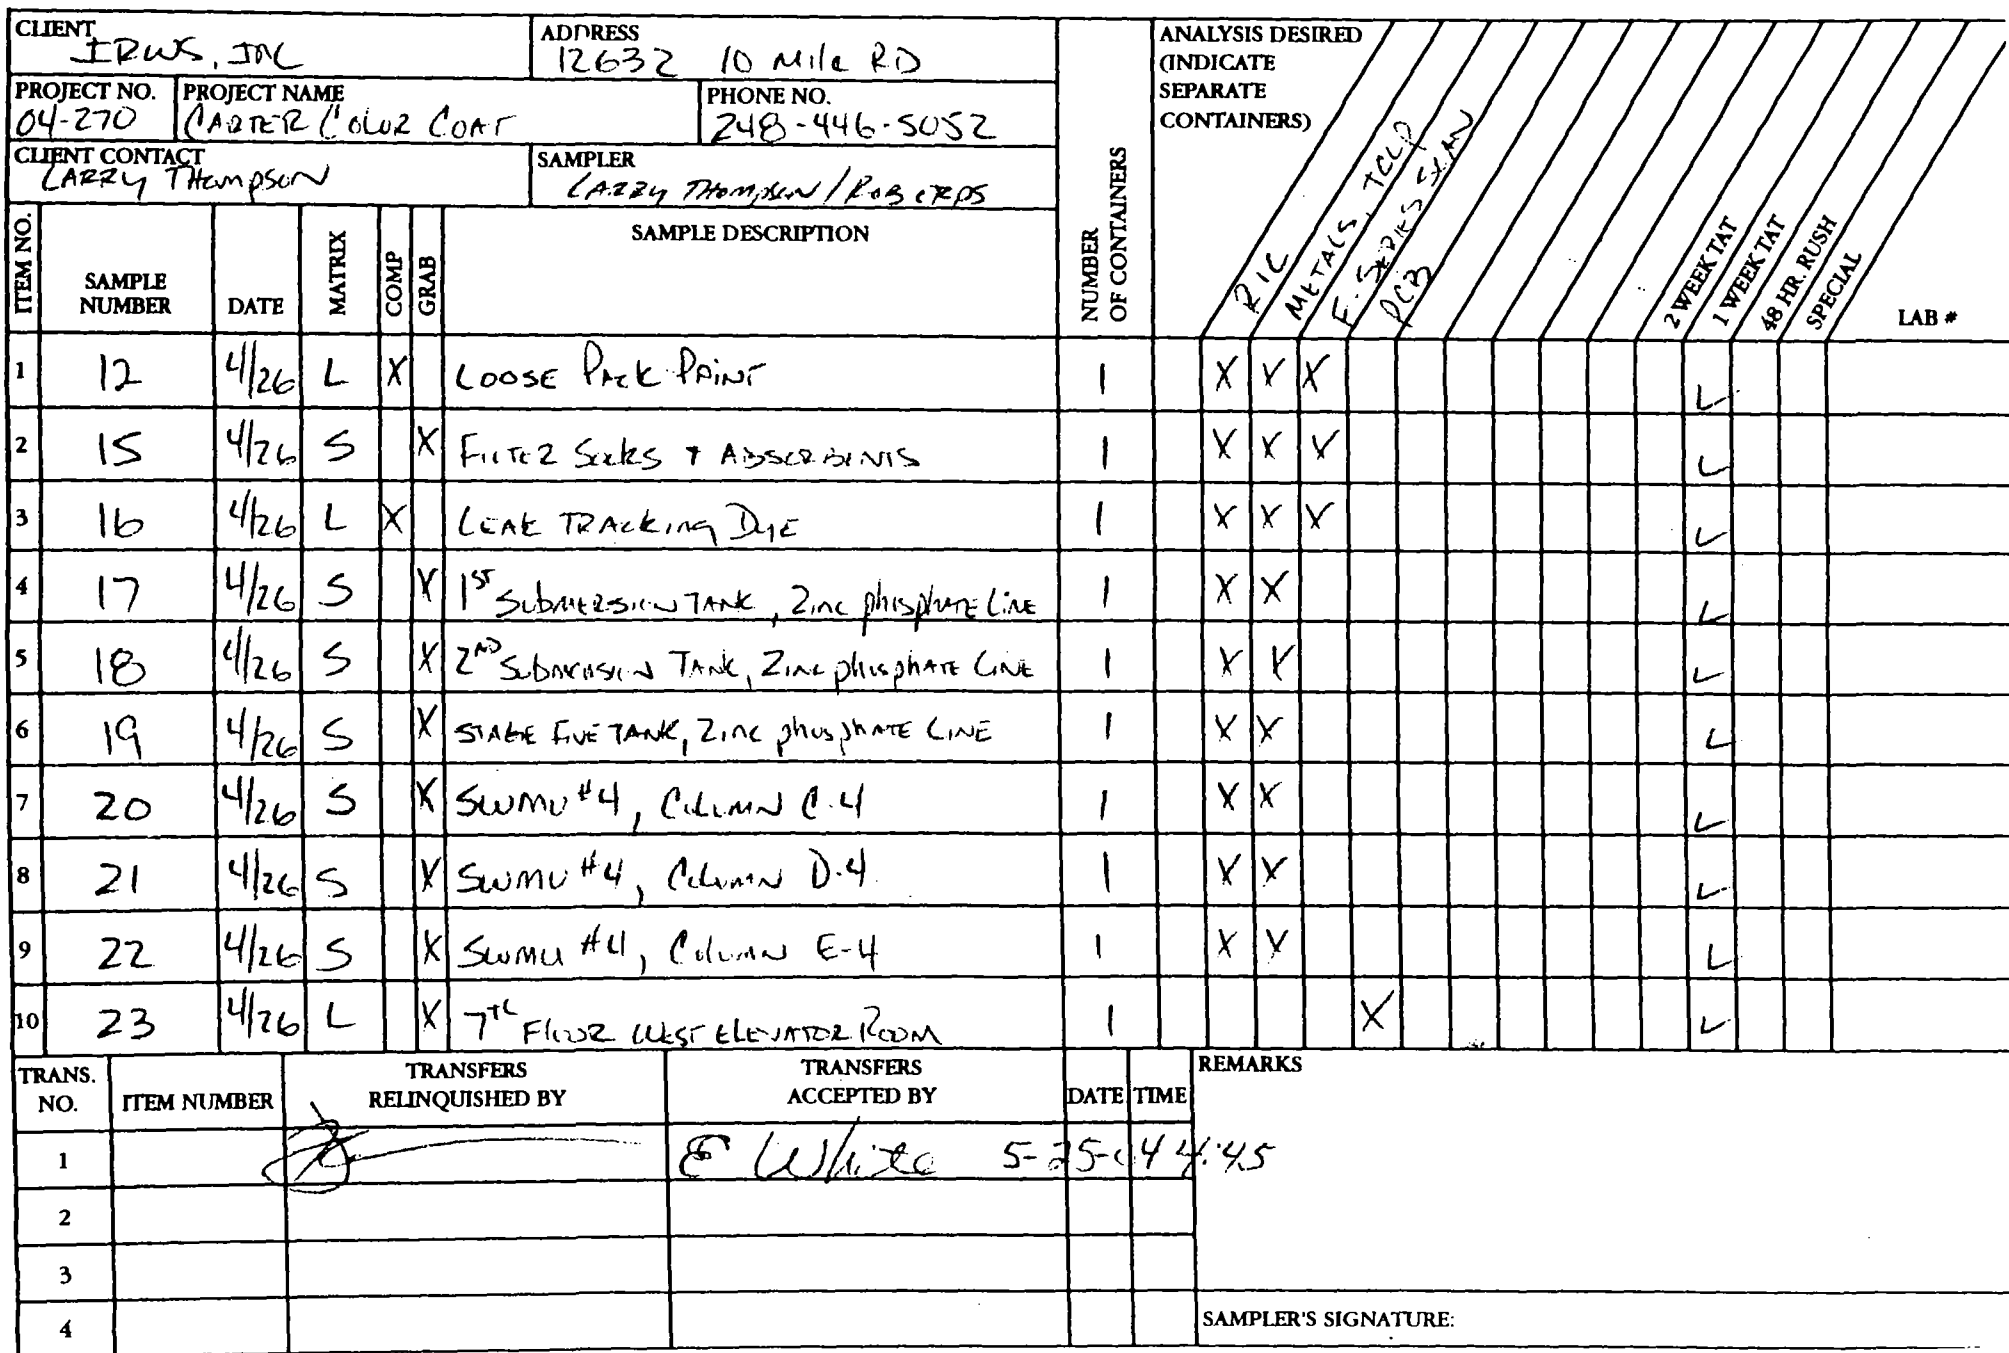 CLIENT ADDRESS ANALYSIS DESIRED
IRWS, INC 12632 10 Mile RD (INDICATE
PROJECT NO. PROJECT NAME PHONE NO. SEPARATE
04-270 CARTER COLOR COAT 248-446-5052 CONTAINERS)
CLIENT CONTACT SAMPLER
LARRY THOMPSON LARRY THOMPSON /
ITEM NO. SAMPLE NUMBER DATE MATRIX COMP GRAB SAMPLE DESCRIPTION NUMBER OF CONTAINERS RIC METALS, TCLP F-SERIES SCAN PCB 2 WEEK TAT 1 WEEK TAT 48 HR. RUSH SPECIAL LAB #
1 12 4/26 L X LOOSE PACK PAINT 1 X X X ✓
2 15 4/26 S X FILTER SOCKS + ABSORBENTS 1 X X X ✓
3 16 4/26 L X LEAK TRACKING DYE 1 X X X ✓
4 17 4/26 S X 1ST SUBMERSION TANK, ZINC PHOSPHATE LINE 1 X X ✓
5 18 4/26 S X 2ND SUBMERSION TANK, ZINC PHOSPHATE LINE 1 X X ✓
6 19 4/26 S X STAGE FIVE TANK, ZINC PHOSPHATE LINE 1 X X ✓
7 20 4/26 S X SWMU #4, COLUMN C-4 1 X X ✓
8 21 4/26 S X SWMU #4, COLUMN D-4 1 X X ✓
9 22 4/26 S X SWMU #4, COLUMN E-4 1 X X ✓
10 23 4/26 L X 7TH FLOOR WEST ELEVATOR ROOM 1 X ✓
TRANS. NO. ITEM NUMBER TRANSFERS RELINQUISHED BY TRANSFERS ACCEPTED BY DATE TIME REMARKS
1 E White 5-25-04 4:45
2
3
4 SAMPLER'S SIGNATURE: